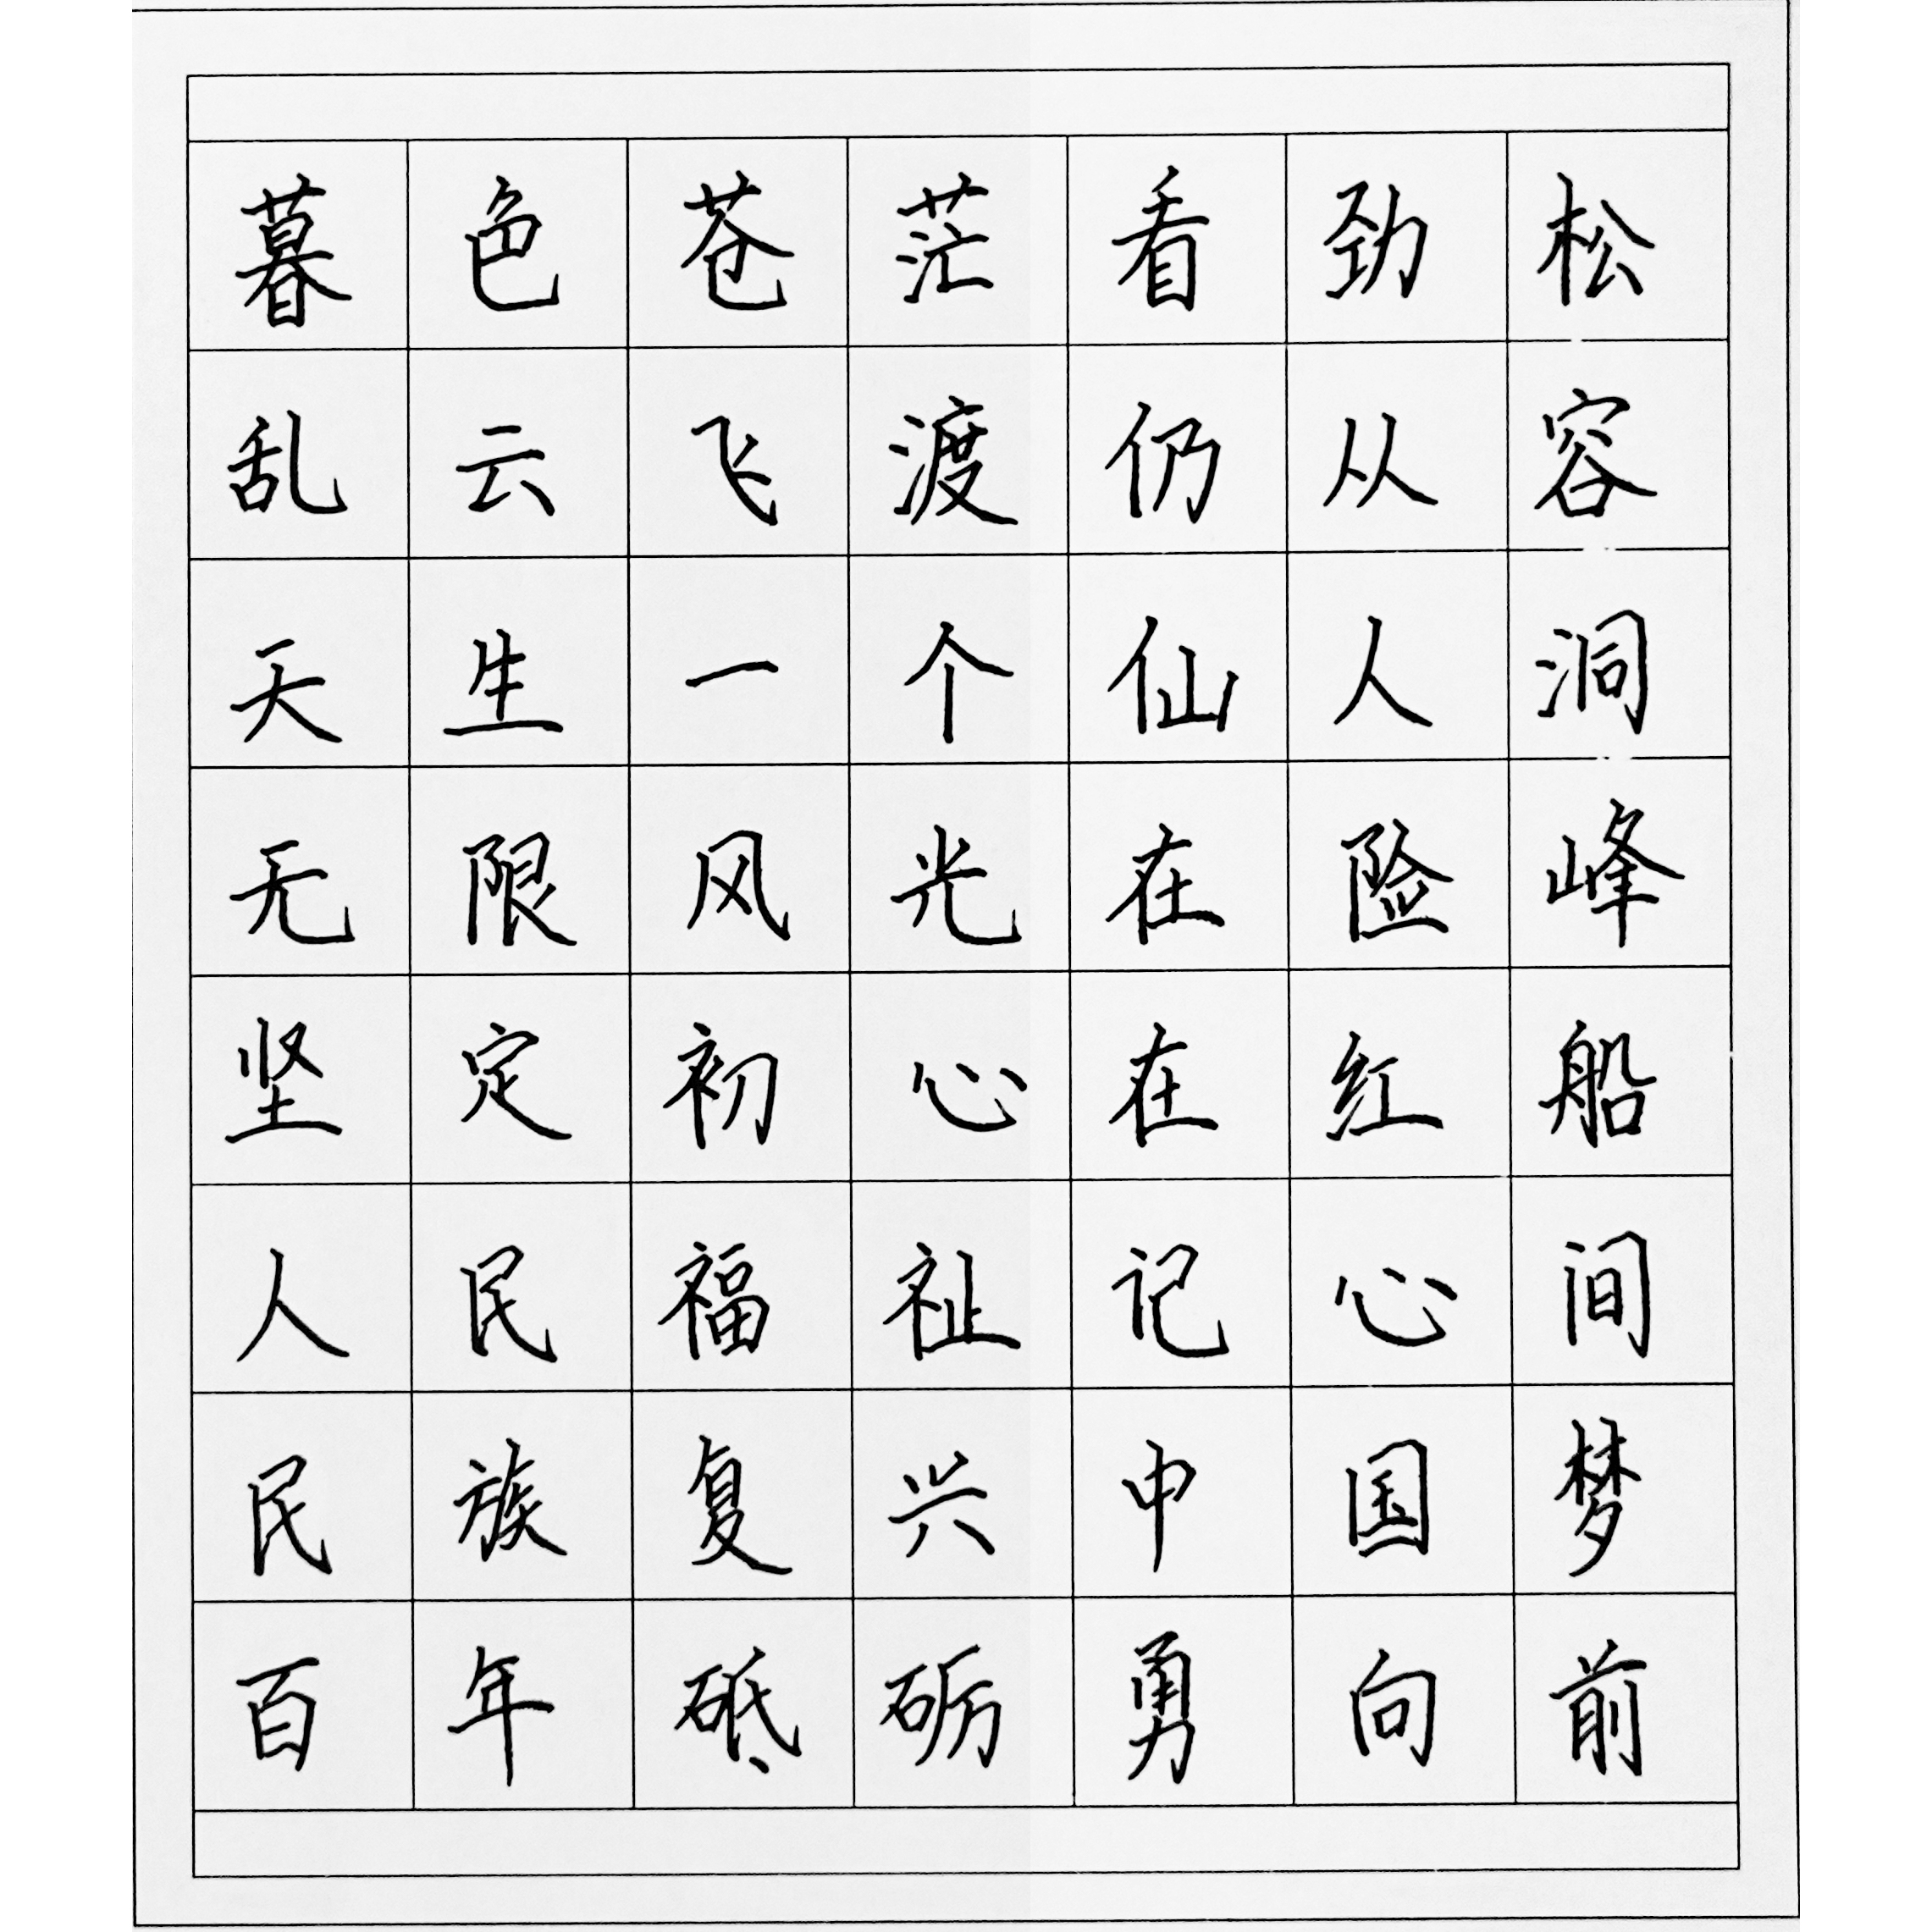 暮色苍茫看劲松
乱云飞渡仍从容
天生一个仙人洞
无限风光在险峰
坚定初心在红船
人民福祉记心间
民族复兴中国梦
百年砥砺勇向前